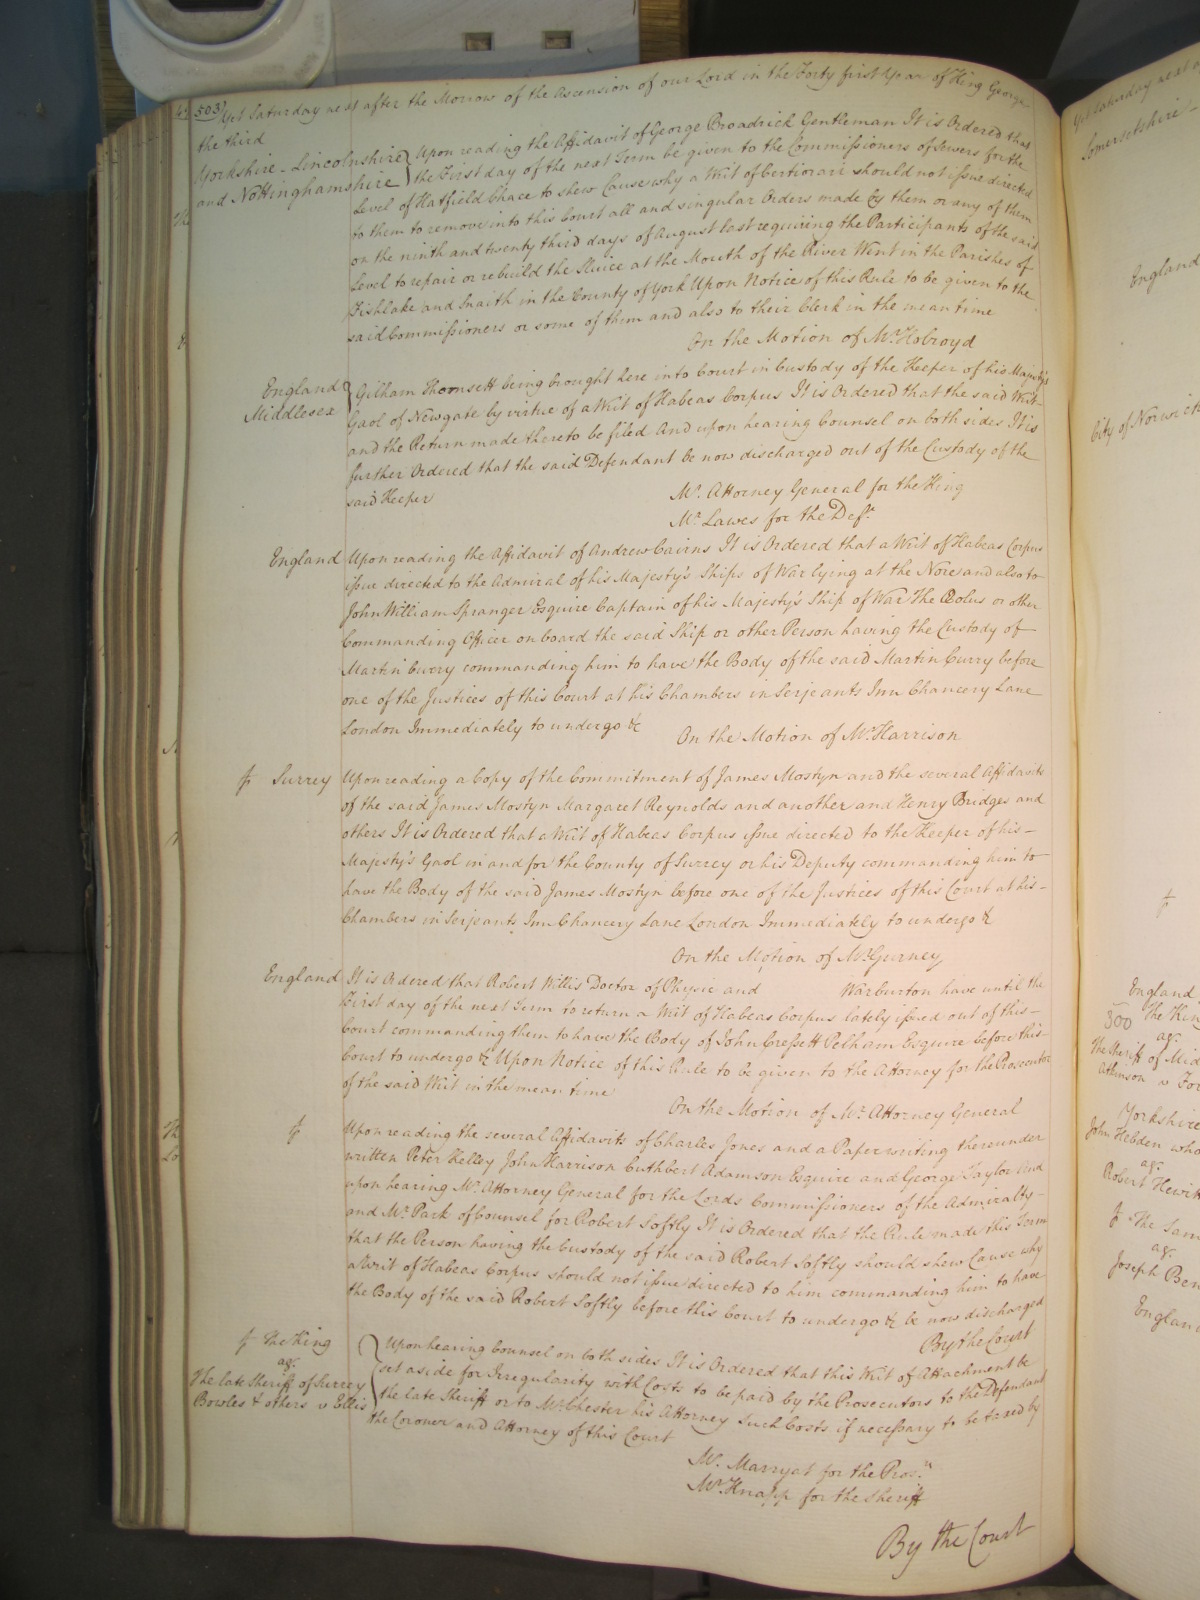 503) Yet Saturday next after the Morrow of the Ascension of our Lord in the Forty first Year of King George
the third
Yorkshire - Lincolnshire
and Nottinghamshire
Upon reading the Affidavit of George Broadrick Gentleman It is Ordered that
the First day of the next Term be given to the Commissioners of Sewers for the
Level of Hatfield Chace to shew Cause why a Writ of Certiorari should not issue directed
to them to remove into this Court all and singular Orders made by them or any of them
on the ninth and twenty third days of August last requiring the Participants of the said
Level to repair or rebuild the Sluice at the Mouth of the River Went in the Parishes of
Fishlake and Snaith in the County of York Upon Notice of this Rule to be given to the
said Commissioners or some of them and also to their Clerk in the mean time
On the Motion of Mr. Holroyd
England
Middlesex
Gilham Thomsett being brought here into Court in Custody of the Keeper of his Majesty's
Gaol of Newgate by virtue of a Writ of Habeas Corpus It is Ordered that the said Writ
and the Return made thereto be filed And upon hearing Counsel on both sides It is
further Ordered that the said Defendant be now discharged out of the Custody of the
said Keeper
Mr. Attorney General for the King
Mr. Lawes for the Deft.
England
Upon reading the Affidavit of Andrew Cairns It is Ordered that a Writ of Habeas Corpus
issue directed to the Admiral of his Majesty's Ships of War lying at the Nore and also to
John William Spranger Esquire Captain of his Majesty's Ship of War The Æolus or other
Commanding Officer on board the said Ship or other Person having the Custody of
Martin Curry commanding him to have the Body of the said Martin Curry before
one of the Justices of this Court at his Chambers in Serjeants Inn Chancery Lane
London Immediately to undergo &c
On the Motion of Mr. Harrison
Surrey
Upon reading a Copy of the Commitment of James Mostyn and the several Affidavits
of the said James Mostyn Margaret Reynolds and another and Henry Bridges and
others It is Ordered that a Writ of Habeas Corpus issue directed to the Keeper of his
Majesty's Gaol in and for the County of Surrey or his Deputy commanding him to
have the Body of the said James Mostyn before one of the Justices of this Court at his
Chambers in Serjeants Inn Chancery Lane London Immediately to undergo &c
On the Motion of Mr. Gurney
England
It is Ordered that Robert Willis Doctor of Physic and Warburton have until the
First day of the next Term to return a Writ of Habeas Corpus lately issued out of this
Court commanding them to have the Body of John Cressett Pelham Esquire before this
Court to undergo &c Upon Notice of this Rule to be given to the Attorney for the Prosecutor
of the said Writ in the mean time
On the Motion of Mr. Attorney General
Upon reading the several Affidavits of Charles Jones and a Paper writing thereunder
written Peter Kelley John Harrison Cuthbert Adamson Esquire and George Taylor And
upon hearing Mr. Attorney General for the Lords Commissioners of the Admiralty
and Mr. Park of Counsel for Robert Softly It is Ordered that the Rule made this Term
that the Person having the Custody of the said Robert Softly should shew Cause why
a Writ of Habeas Corpus should not issue directed to him commanding him to have
the Body of the said Robert Softly before this Court to undergo &c be now discharged
By the Court
The King
agt.
The late Sheriff of Surrey
Bowles & others v Ellis
Upon hearing Counsel on both sides It is Ordered that this Writ of Attachment be
set aside for Irregularity with Costs to be paid by the Prosecutors to the Defendant
the late Sheriff or to Mr. Chester his Attorney Such Costs if necessary to be taxed by
the Coroner and Attorney of this Court
Mr. Marryat for the Pros.rs
Mr. Knapp for the Sheriff
By the Court
Yet Saturday next
Somersetshire
England
City of Norwich
England
300 The King
agt.
The Sheriff of Mid
Atkinson v For
Yorkshire
John Hebden who
agt.
Robert Hewitt
The Sam
agt.
Joseph Ben
England